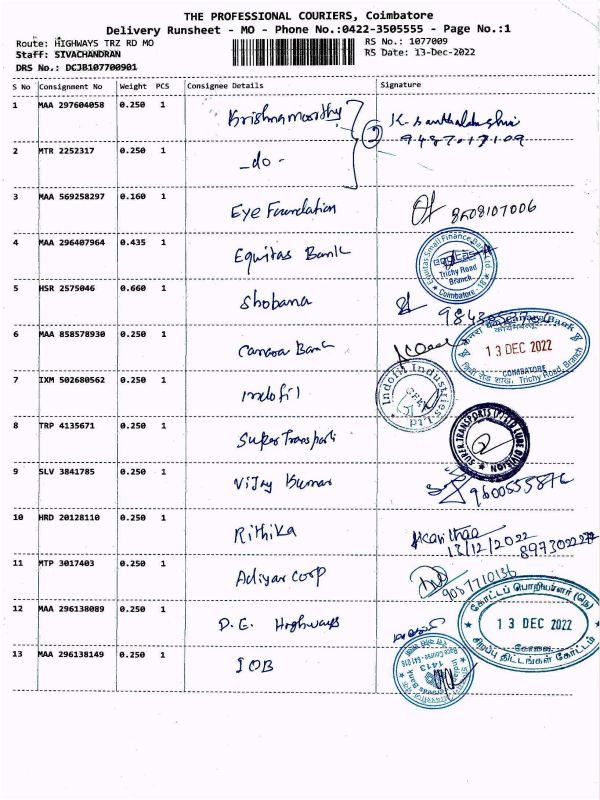 THE PROFESSIONAL COURIERS, Coimbatore
Delivery Runsheet - MO - Phone No.:0422-3505555 - Page No.:1
Route: HIGHWAYS TRZ RD MO
Staff: SIVACHANDRAN
DRS No.: DCJB107700901
RS No.: 1077009
RS Date: 13-Dec-2022
S No Consignment No Weight PCS Consignee Details Signature
1 MAA 297604058 0.250 1 Krishnamoorthy
2 MTR 2252317 0.250 1 -do-
3 MAA 569258297 0.160 1 Eye Foundation 8508107006
4 MAA 296407964 0.435 1 Equitas Bank
Equitas Small Finance Bank Ltd
equitas
Trichy Road
Branch
Coimbatore - 18
5 HSR 2575046 0.660 1 Shobana
6 MAA 858578930 0.250 1 Canara Bank
Canara Bank
13 DEC 2022
COIMBATORE
Trichy Road, Branch
7 IXM 502680562 0.250 1 Indofil
Indofil Industries Ltd
8 TRP 4135671 0.250 1 Super Transports
SUPER TRANSPORTS (P) LTD LUBE DIVISION
9 SLV 3841785 0.250 1 Vijay Kumar 9600555876
10 HRD 20128110 0.250 1 Rithika
13/12/2022
11 MTP 3017403 0.250 1 Adiyar Corp
12 MAA 296138089 0.250 1 D.E. Highways
கோட்டப் பொறியாளர் (நெ)
13 DEC 2022
கோவை
சிறப்பு திட்டங்கள் கோட்டம்
13 MAA 296138149 0.250 1 IOB
1413